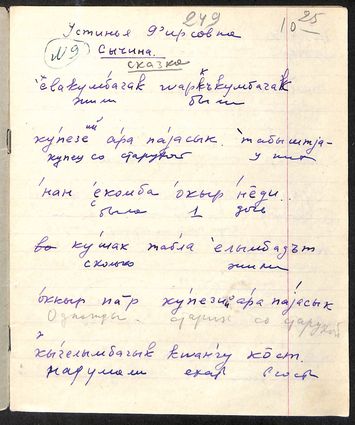 249
10 25
Устинья Фирсовна
N9 Сычина.
сказка
е́вакумбачак варкъкумбачак
жили были
ку́пезе а́ра паjасык. табыштjа-
купец со старухой у них
нан е́комба о́кыр не́ди..
было 1 дочь
ку́шак табла е́лымбадът
сколько жили
о́ккыр па̄р ку́пезий а́ра паjасык
Однажды старик со старухой
кы́челымбачык квангу ко̄ст.
надумали ехат в гост